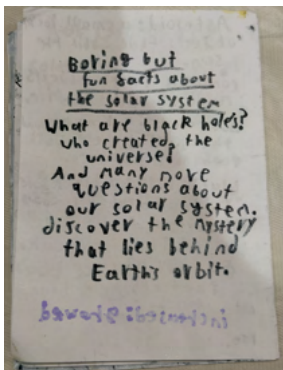 Boring but
fun facts about
the solar system
What are black holes?
who created, the
universe?
And many more
questions about
our solar system.
discover the mystery
that lies behind
Earth's orbit.